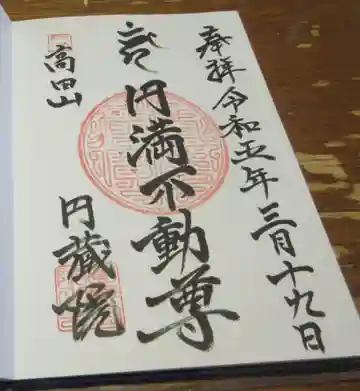 奉拝 令和五年三月十九日
円満不動尊
高田山
円蔵院